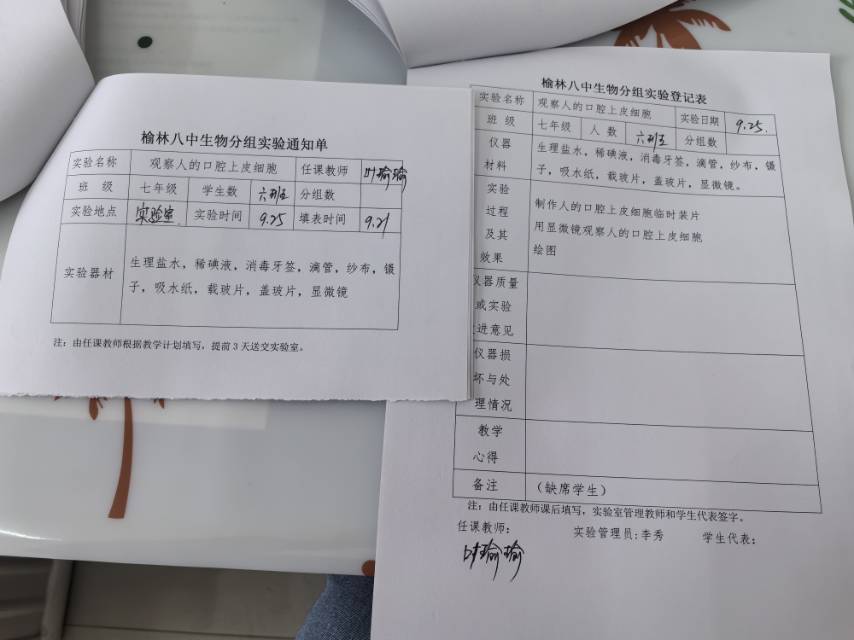 榆林八中生物分组实验通知单
实验名称 观察人的口腔上皮细胞 任课教师 叶瑜瑜
班 级 七年级 学生数 六班 分组数
实验地点 实验室 实验时间 9.25 填表时间 9.21
实验器材
生理盐水，稀碘液，消毒牙签，滴管，纱布，镊
子，吸水纸，载玻片，盖玻片，显微镜
注：由任课教师根据教学计划填写，提前3天送交实验室。
榆林八中生物分组实验登记表
实验名称 观察人的口腔上皮细胞 实验日期 9.25.
班 级 七年级 人 数 六班 分组数
仪器
材料
生理盐水，稀碘液，消毒牙签，滴管，纱布，镊
子，吸水纸，载玻片，盖玻片，显微镜。
实验
过程
及其
效果
制作人的口腔上皮细胞临时装片
用显微镜观察人的口腔上皮细胞
绘图
仪器质量
或实验
进意见
仪器损
坏与处
理情况
教学
心得
备注 （缺席学生）
注：由任课教师课后填写，实验室管理教师和学生代表签字。
任课教师： 实验管理员:李秀 学生代表：
叶瑜瑜